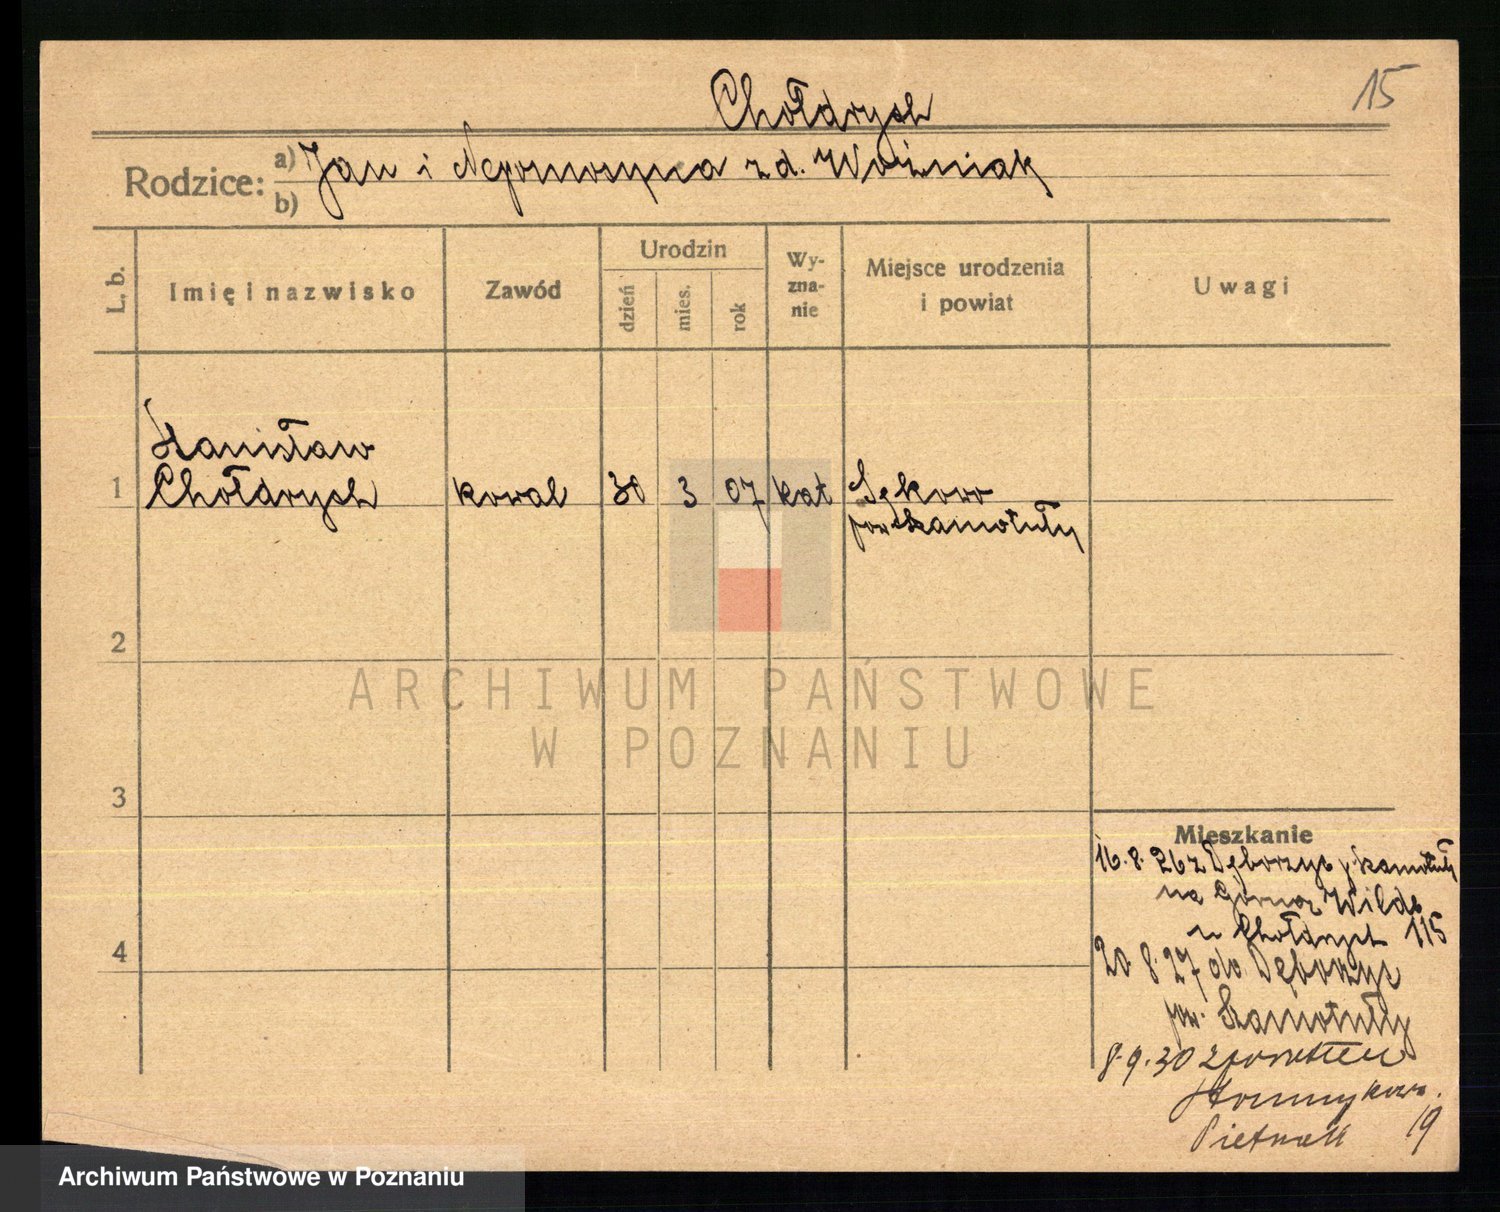 Chołdrych
15
Rodzice:
a) Jan i Nepomocyna z d. Woźniak
b)
L. b.
Imię i nazwisko
Zawód
Urodzin
dzień
mies.
rok
Wy-
zna-
nie
Miejsce urodzenia
i powiat
Uwagi
Stanisław
1 Chołdrych kowal 30 3 07 kat Sękowo
pow Szamotuły
2
3
4
ARCHIWUM PAŃSTWOWE
W POZNANIU
Mieszkanie
16.8.26 z Dęborzyc p. Szamotuły
na Górna Wilda
u Chołdrych 115
20.8.27 do Dęborzyc
pow. Szamotuły
8.9.30 z powrotem
19
Archiwum Państwowe w Poznaniu